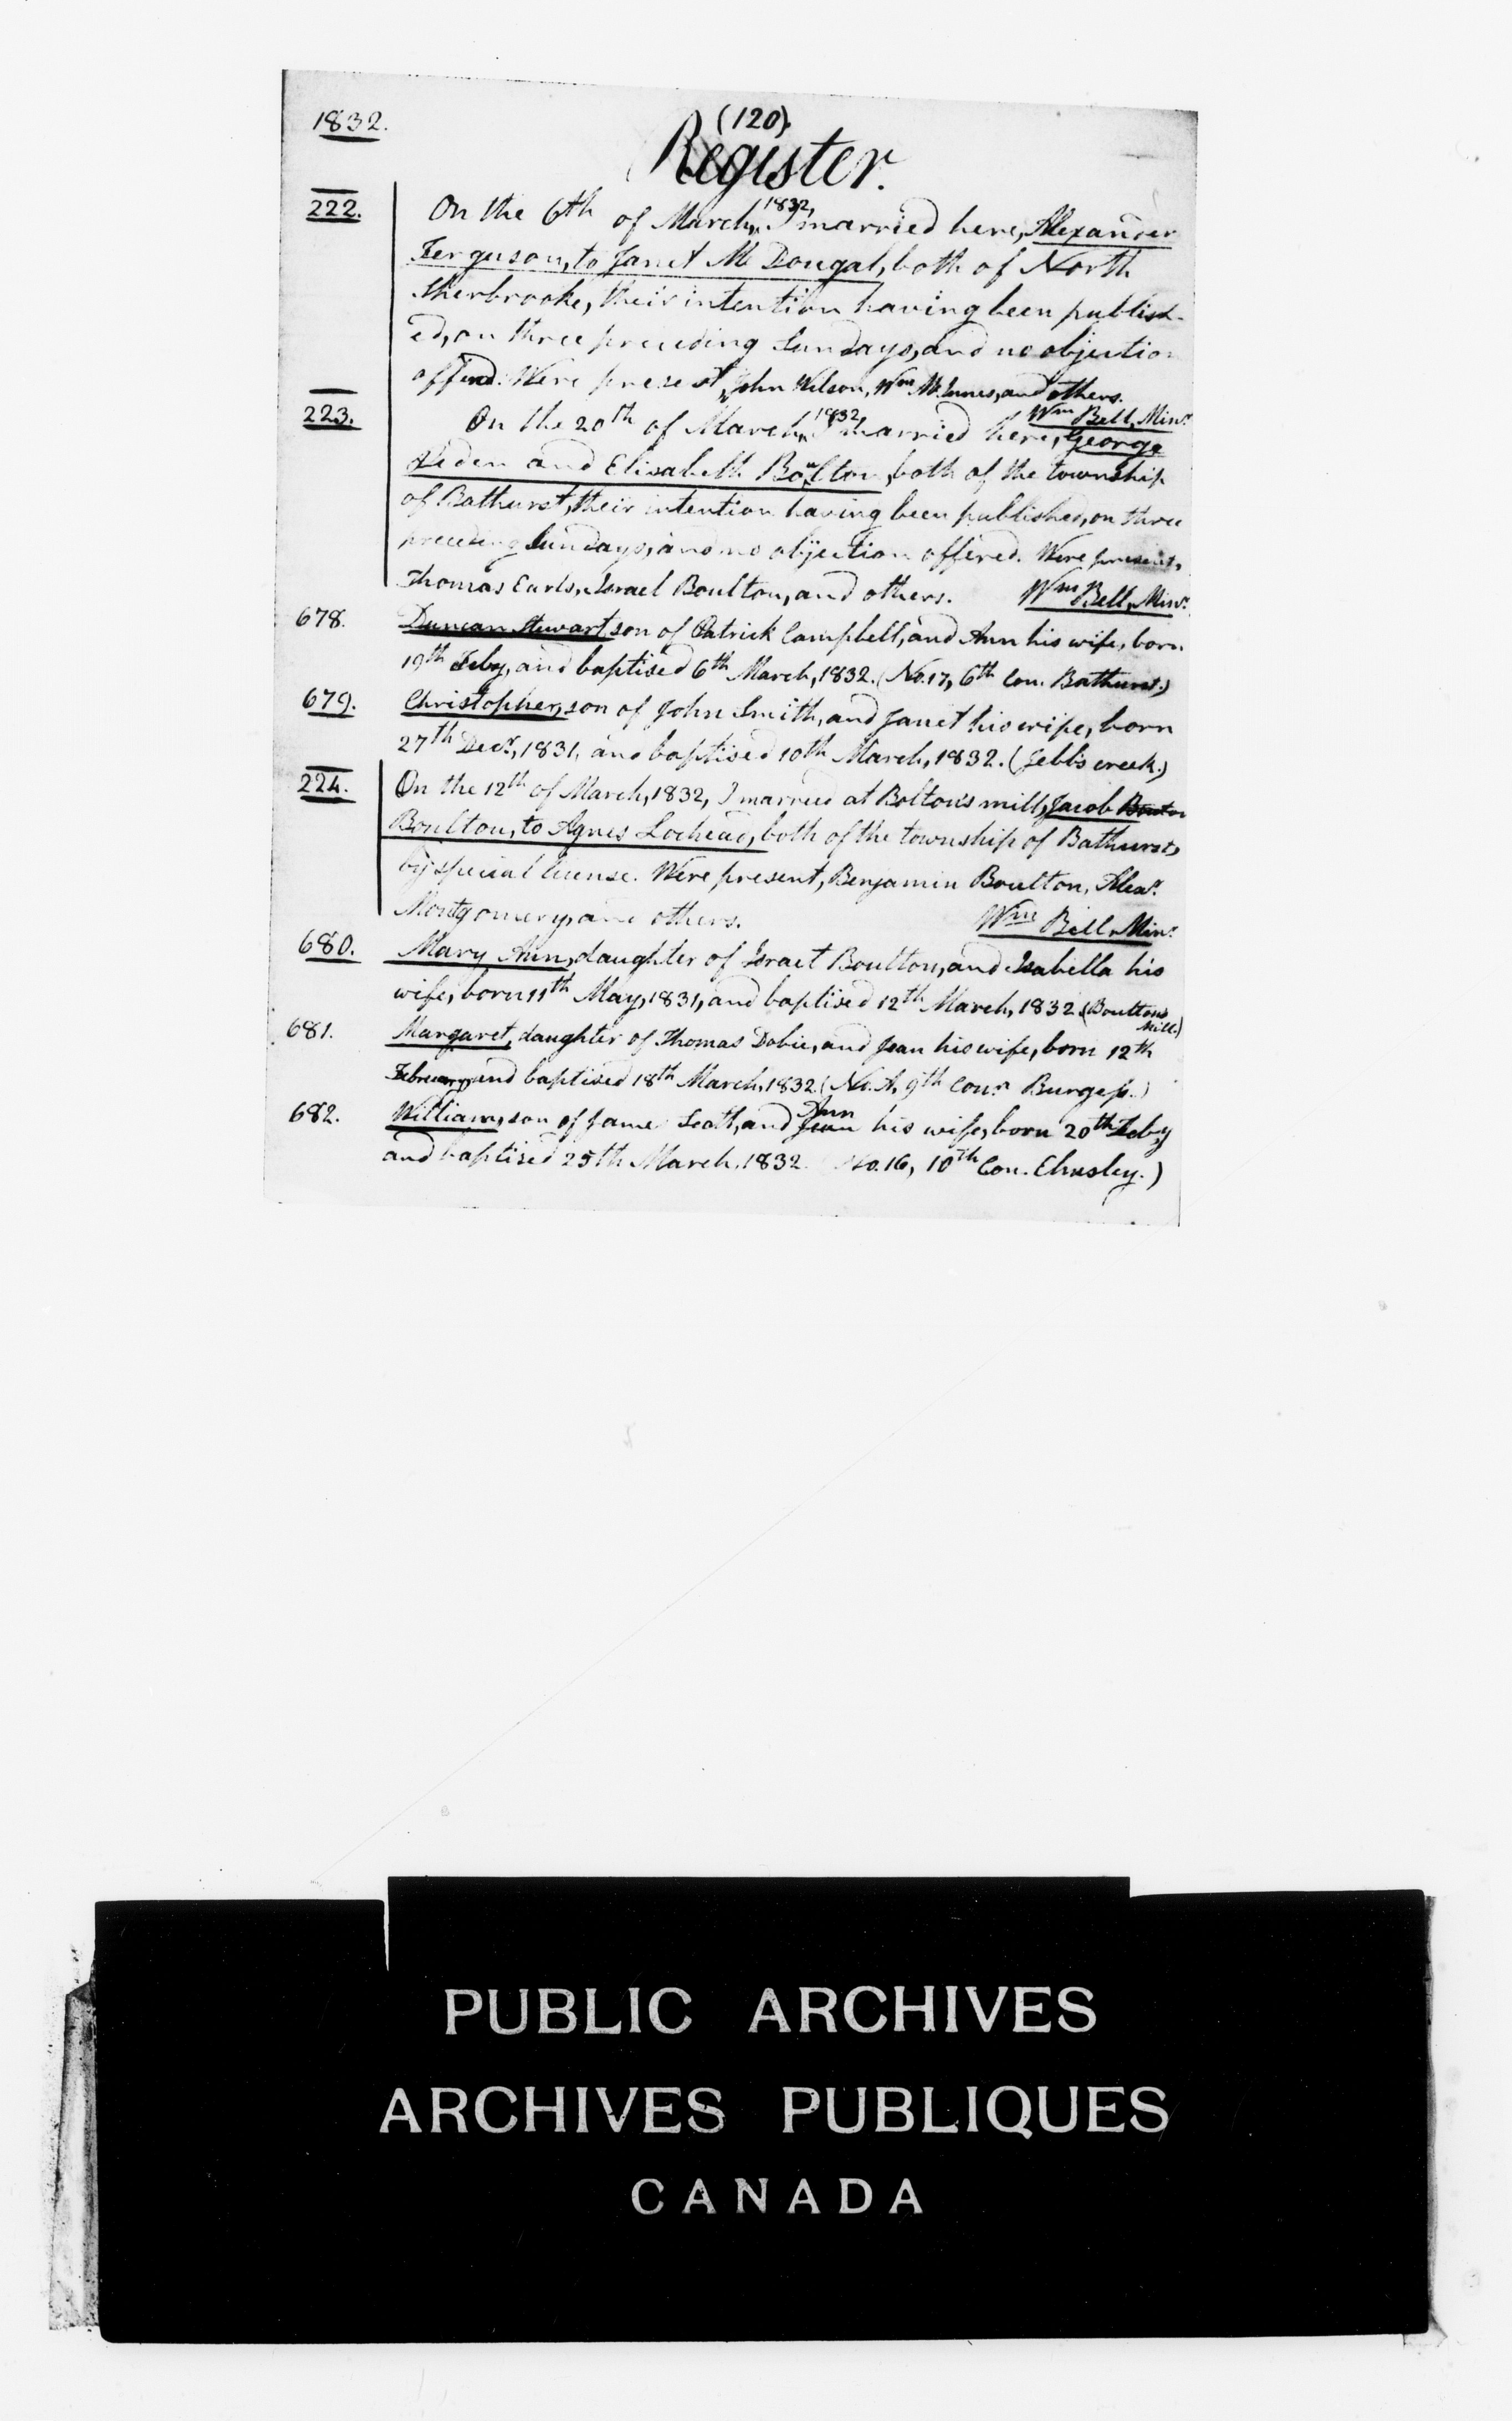 1832.
(120).
Register.
222. On the 6th of March, 1832, I married here, Alexander
Ferguson, to Janet Mc Dougal, both of North
Sherbrooke, their intention having been publish-
ed, on three preceding Sundays, and no objection
offered. Were present, John Wilson, Wm McInnes, and others.
Wm Bell, Minr.
223. On the 20th of March, 1832, I married here, George
and Elisabeth Boulton, both of the township
of Bathurst, their intention having been published, on three
preceding Sundays, and no objection offered. Were present,
Thomas Earls, Israel Boulton, and others. Wm Bell, Minr.
678. Duncan Stewart son of Patrick Campbell, and Ann his wife, born
19th Feby, and baptised 6th March, 1832. (No. 17, 6th Con. Bathurst.)
679. Christopher, son of John Smith, and Janet his wife, born
27th Decr, 1831, and baptised 10th March, 1832. (Jebb's creek.)
224. On the 12th of March, 1832, I married at Bolton's mill, Jacob
Boulton, to Agnes Lochead, both of the township of Bathurst,
by special license. Were present, Benjamin Boulton, Alexr.
Montgomery, and others. Wm Bell, Minr.
680. Mary Ann, daughter of Israel Boulton, and Isabella his
wife, born 11th May, 1831, and baptised 12th March, 1832. (Boultons
Mill.)
681. Margaret, daughter of Thomas Dobie, and Jean his wife, born 12th
February, and baptised 18th March, 1832. (No. A, 9th Conn. Burgess.)
682. William, son of James Scott, and Jean Ann his wife, born 20th Feby
and baptised 25th March, 1832. (No. 16, 10th Con. Elmsley.)
PUBLIC ARCHIVES
ARCHIVES PUBLIQUES
CANADA